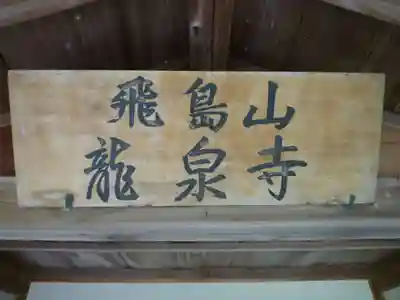 飛島山
龍泉寺